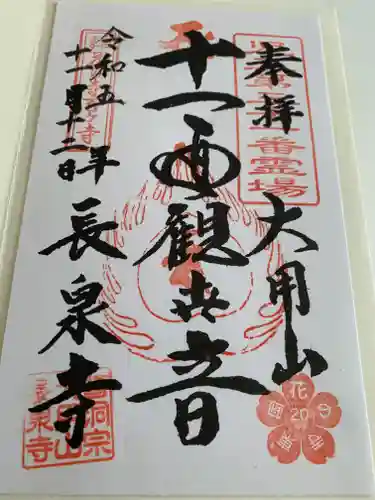 奉拝
大用山
十一面観世音
令和五年
十一月十二日
長泉寺
番霊場
曹洞宗
泉寺
花
20